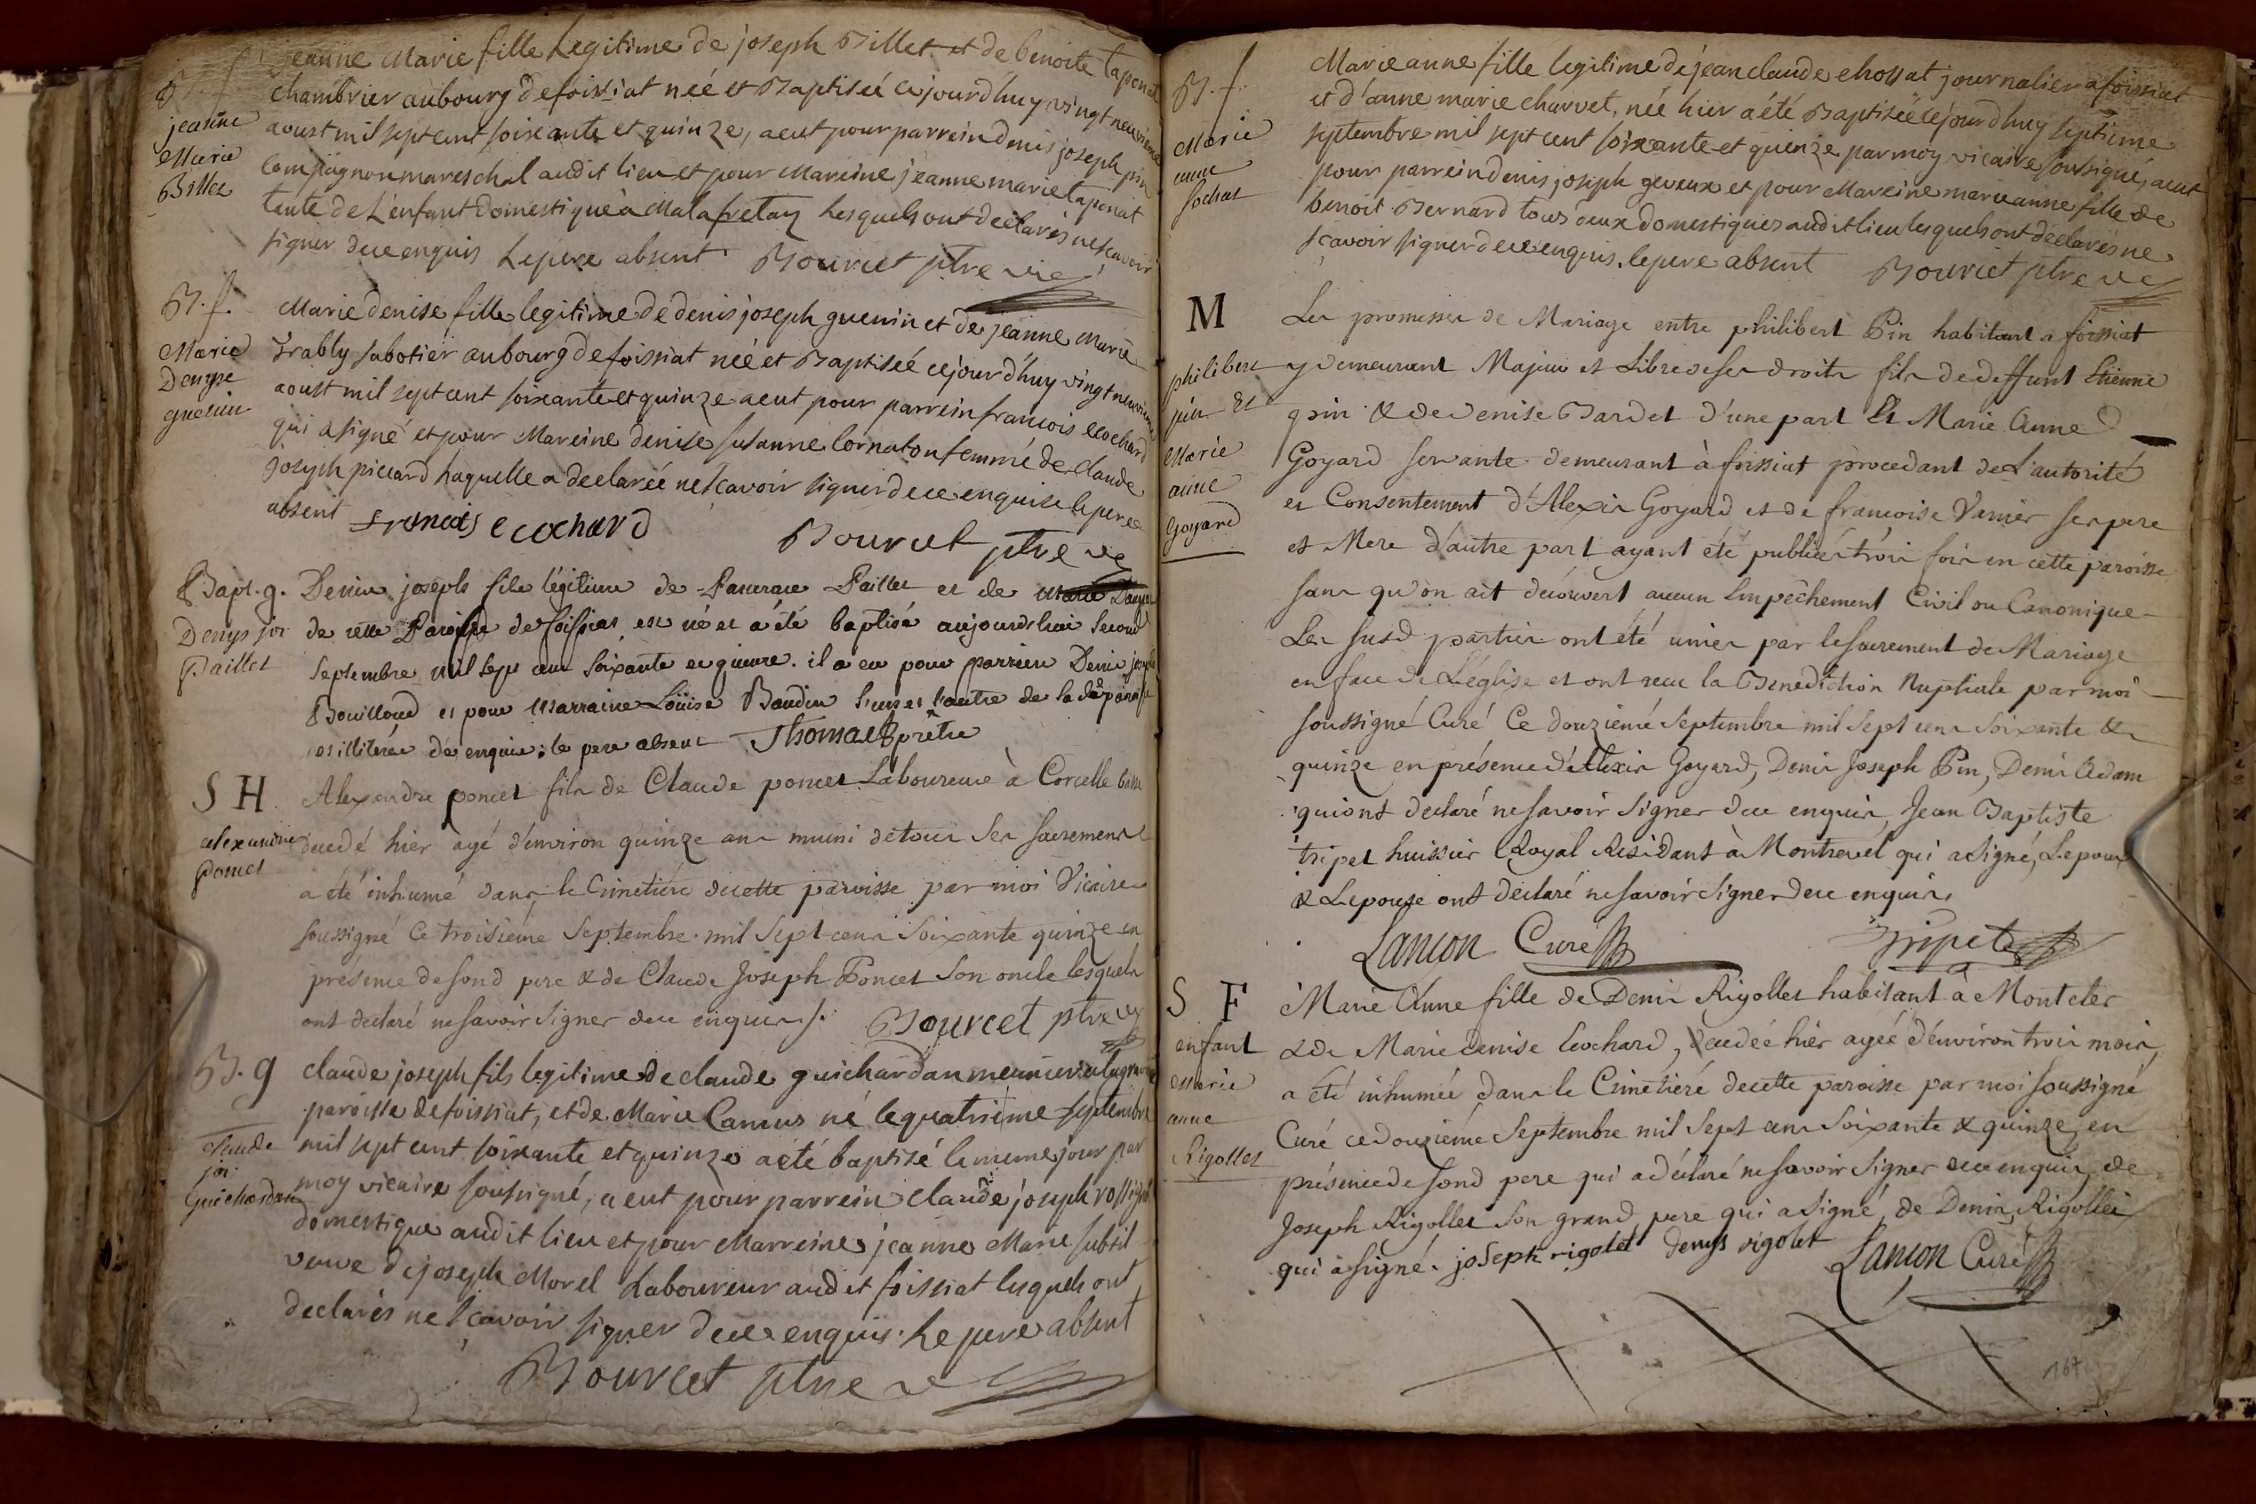 B. f
jeanne
Marie
Billet
jeanne Marie fille Legitime de joseph Billet et de benoite taponat
chambrier au bourg de foissiat née et Baptisée cejourd'huy vingt neuvieme
aoust mil sept cent soixante et quinze, a eut pour parrein denis joseph pin
compagnon mareschal audit lieu et pour Mareine jeanne marie taponat
tante de L'enfant domestique à Malafretaz Lesquels ont déclarés ne scavoir
signer de ce enquis Le pere absent Bourcet ptre vic
B. f.
Marie
Denyse
guenin
Marie denise fille legitime de denis joseph guenin et de jeanne Marie
Trably sabotier au bourg de foissiat née et Baptisée cejourd'huy vingt neuvieme
aoust mil sept cent soixante et quinze a eut pour parrein francois ecochard
qui a signé et pour Mareine denise susanne Cornaton femme de Claude
joseph piccard Laquelle a declarée ne scavoir signer de ce enquise le pere
absent francois ecochard
Bourcet ptre vic
Bapt. g.
Denys jos
Paillet
Denis joseph fils légitime de Pancrace Paillet et de Marie
de cette Paroisse de foissiat, est né et a été baptisé aujourdhui second
septembre mil sept cent soixante et quinze. il a eu pour parrein Denis joseph
Bouilloud et pour Marraine Loüise Baudin l'un et l'autre de la de paroisse
et illiterés de enquis; le pere absent Thomas prêtre
S H
alexandre
poncet
Alexandre poncet fils de Claude poncet Laboureur à Corcelle
decedé hier agé d'environ quinze ans muni de tous les sacrements
a été inhumé dans le Cimetiére de cette paroisse par moi Vicaire
soussigné Ce troisiéme Septembre mil Sept cens Soixante quinze en
présence de sond pere & de Claude Joseph Poncet son oncle lesquels
ont declaré ne savoir signer de ce enquis. Bourcet ptre vic
B. g
Claude
jos
Guichardan
claude joseph fils legitime de claude guichardan meunier
paroisse de foissiat, et de Marie Camus né le quatrieme septembre
mil sept cent soixante et quinze a été baptisé le meme jour par
moy vicaire soussigné, a eut pour parrein claude joseph
domestique audit lieu et pour Marreine jeanne Marie subtil
veuve de joseph Morel Laboureur audit foissiat lesquels ont
declarés ne scavoir signer de ce enquis. Le pere absent
Bourcet ptre vic
B. f.
Marie
anne
Marie anne fille legitime de jean claude chossat journalier a foissiat
et d'anne marie charvet, née hier a été Baptisée cejourd'huy septieme
septembre mil sept cent soixante et quinze par moy vicaire soussigné, a eut
pour parrein denis joseph geveux et pour Mareine marie anne fille de
benoit Bernard tous deux domestiques audit lieu lesquels ont declarés ne
scavoir signer de ce enquis. le pere absent Bourcet ptre vic
M
philibert
pin et
Marie
anne
Goyard
Les promesses de Mariage entre philibert Pin habitant a foissiat
y demeurant Majeur et Libre de ses droits fils de deffunt Etienne
pin & de denise Bardet d'une part Et Marie Anne
Goyard servante demeurant à foissiat procedant de L'autorité
et Consentement d'Alexis Goyard et de francoise Vanier ses pere
et Mere d'autre part ayant été publiées trois fois en cette paroisse
sans qu'on ait découvert aucun Empêchement Civil ou Canonique
Les susd parties ont été unies par le sacrement de Mariage
en face de L'église et ont recu la Benediction Nuptiale par moi
soussigné Curé Ce douziémé Septembre mil Sept cens Soixante &
quinze en présence d'Alexis Goyard, Denis Joseph Pin, Denis Adam
qui ont declaré ne savoir signer de ce enquis, Jean Baptiste
tripet huissier Royal Residant à Montrevel qui a signé, L'epoux
& L'epouse ont déclaré ne savoir signer de ce enquis.
Lancon Curé Tripet
S F
enfant
Marie
anne
Rigollet
Marie Anne fille de Denis Rigollet habitant à Monteler
& de Marie denise Ecochard, decedée hier agée d'environ trois mois,
a été inhumée dans le Cimétiéré de cette paroisse par moi soussigné
Curé ce douziéme Septembre mil Sept cens Soixante & quinze, en
présence de sond pere qui a déclaré ne savoir signer de ce enquis, de
Joseph Rigollet son grand pere qui a signé, de Denis Rigollet
qui a signé. joseph rigolet denys rigolet Lancon Curé
167